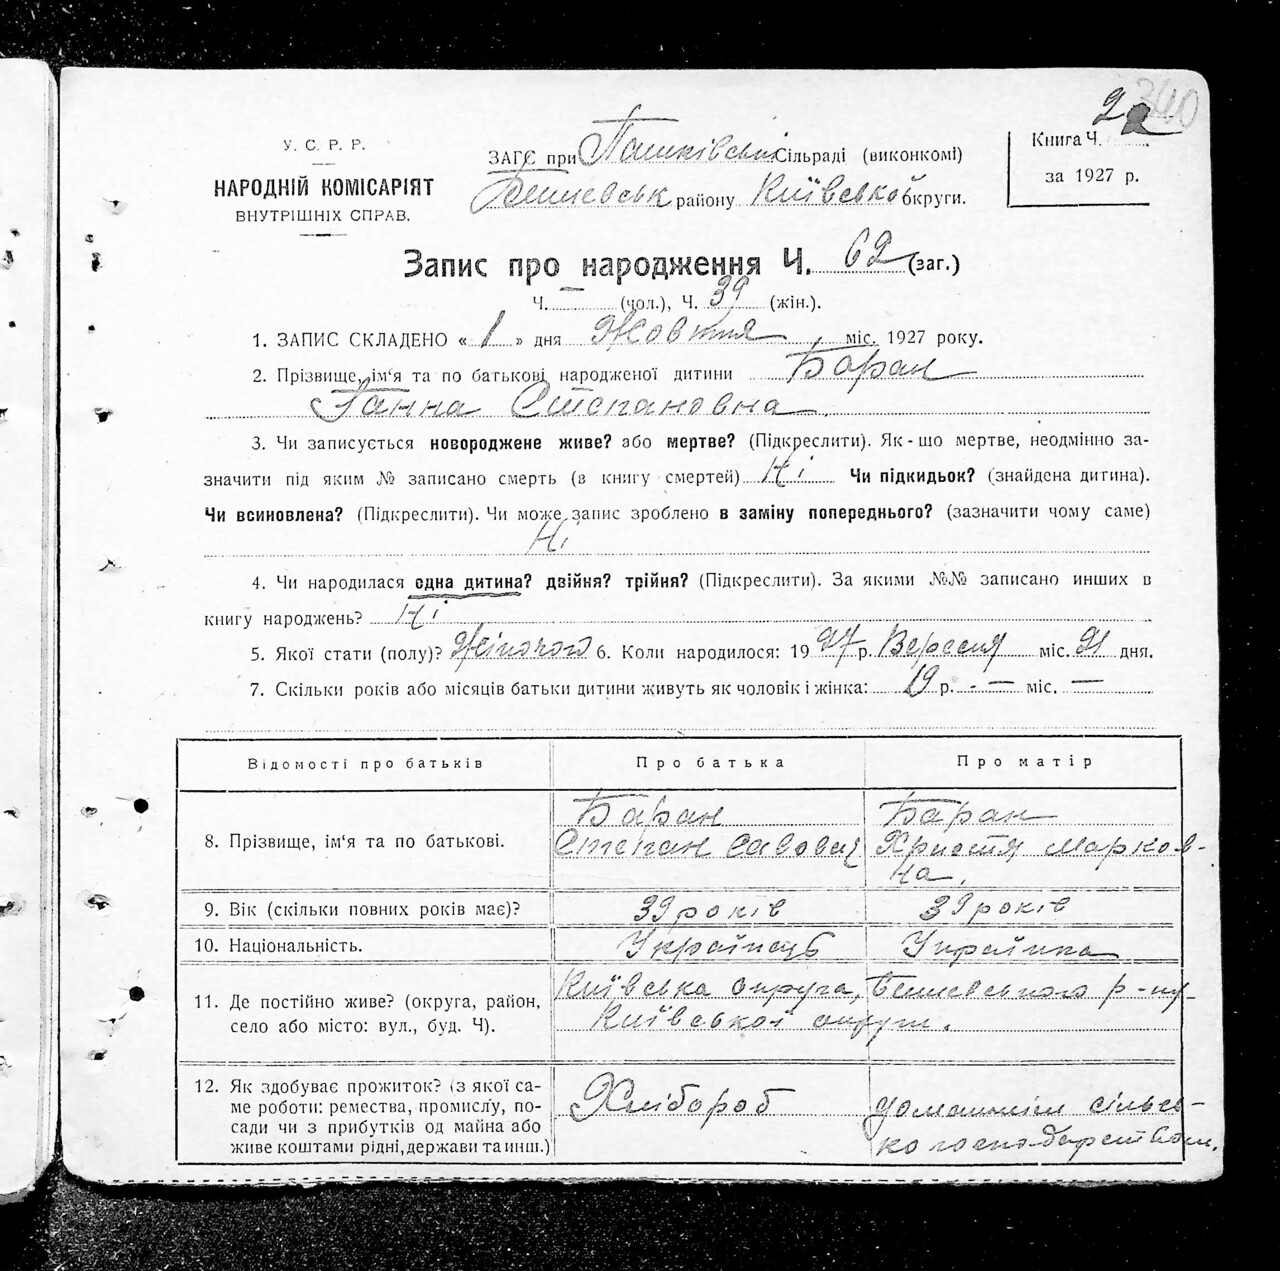 340
22
У. С. Р. Р.
НАРОДНІЙ КОМІСАРІЯТ
ВНУТРІШНІХ СПРАВ.
ЗАГС при Пашківській Сільраді (виконкомі)
району Київської округи.
Книга Ч.
за 1927 р.
Запис про народження Ч. 62 (заг.)
Ч. — (чол.), Ч. 39 (жін.).
1. ЗАПИС СКЛАДЕНО « 1 » дня Жовтня міс. 1927 року.
2. Прізвище, ім‘я та по батькові народженої дитини Баран
Ганна Степановна
3. Чи записується новороджене живе? або мертве? (Підкреслити). Як-що мертве, неодмінно за-
значити під яким № записано смерть (в книгу смертей) Ні Чи підкидьок? (знайдена дитина).
Чи всиновлена? (Підкреслити). Чи може запис зроблено в заміну попереднього? (зазначити чому саме)
Ні
4. Чи народилася одна дитина? двійня? трійня? (Підкреслити). За якими №№ записано инших в
книгу народжень? Ні
5. Якої стати (полу)? Жіночого 6. Коли народилося: 1927 р. Вересня міс. 21 дня.
7. Скільки років або місяців батьки дитини живуть як чоловік і жінка: 19 р. - — міс. —
Відомості про батьків Про батька Про матір
8. Прізвище, ім‘я та по батькові. Баран Степан Савович Баран Христя Марков-
на.
9. Вік (скільки повних років має)? 39 років 39 років
10. Національність. Українець Українка
11. Де постійно живе? (округа, район, Київська округа, р-ну
село або місто: вул., буд. Ч). Київської округи.
12. Як здобуває прожиток? (з якої са- Хлібороб домашнім сільсь-
ме роботи: ремества, промислу, по- ко господарством.
сади чи з прибутків од майна або
живе коштами рідні, держави та инш.)